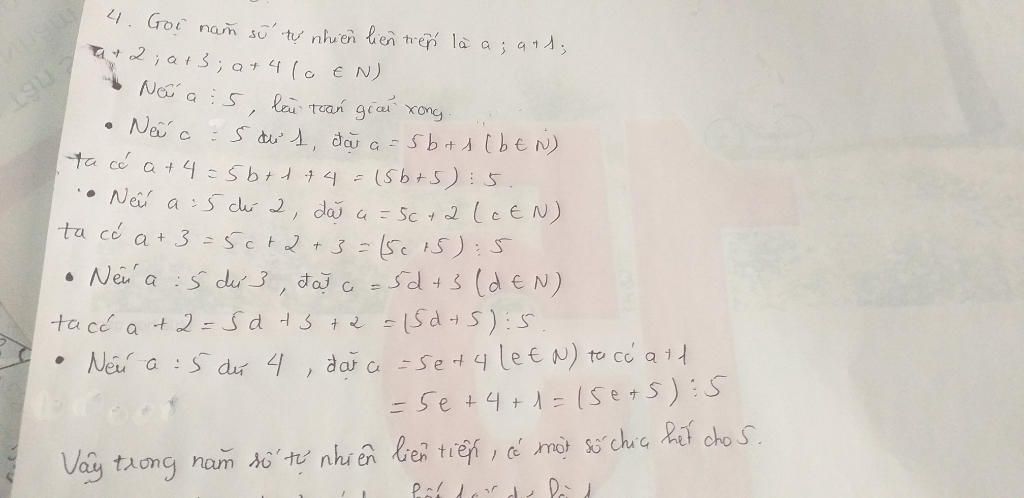 4. Gọi năm số tự nhiên liên tiếp là a; a+1;
a+2; a+3; a+4 (a ∈ N)
• Nếu a ⋮ 5, bài toán giải xong.
• Nếu a : 5 dư 1, đặt a = 5b+1 (b ∈ N)
ta có a+4 = 5b+1+4 = (5b+5) ⋮ 5.
• Nếu a : 5 dư 2, đặt a = 5c+2 (c ∈ N)
ta có a+3 = 5c+2+3 = (5c+5) ⋮ 5
• Nếu a : 5 dư 3, đặt a = 5d+3 (d ∈ N)
ta có a+2 = 5d+3+2 = (5d+5) ⋮ 5.
• Nếu a : 5 dư 4, đặt a = 5e+4 (e ∈ N) ta có a+1
= 5e+4+1 = (5e+5) ⋮ 5
Vậy trong năm số tự nhiên liên tiếp, có một số chia hết cho 5.